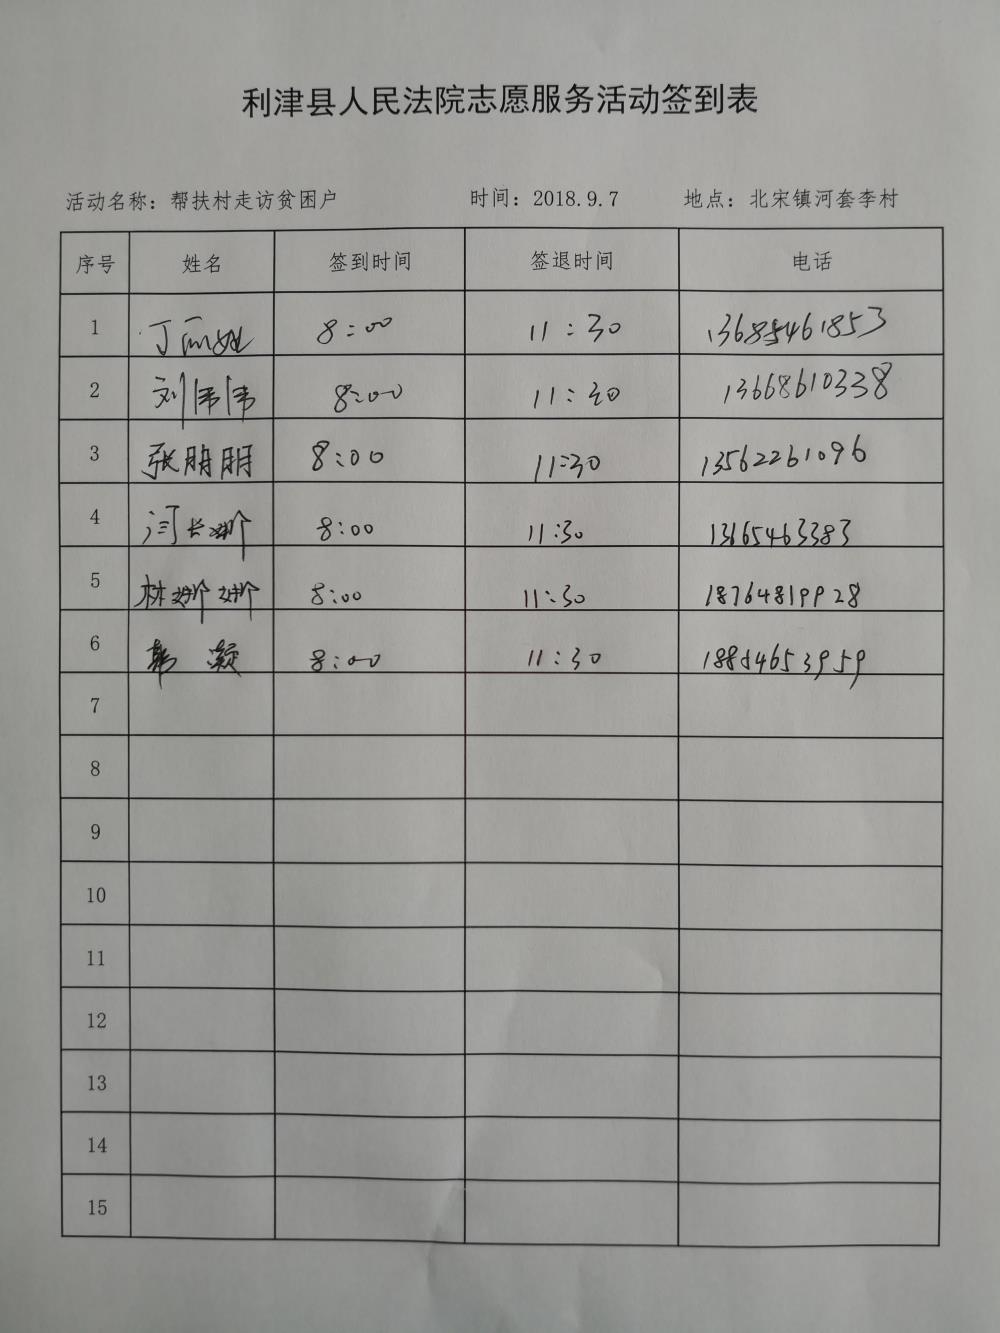 利津县人民法院志愿服务活动签到表
活动名称：帮扶村走访贫困户 时间：2018.9.7 地点：北宋镇河套李村
序号 姓名 签到时间 签退时间 电话
1 丁 8:00 11:30 13685461853
2 刘伟伟 8:00 11:30 13668610338
3 张朋朋 8:00 11:30 13562261096
4 8:00 11:30 13165463383
5 林娜娜 8:00 11:30 18764819928
6 韩凝 8:00 11:30 18854653959
7
8
9
10
11
12
13
14
15